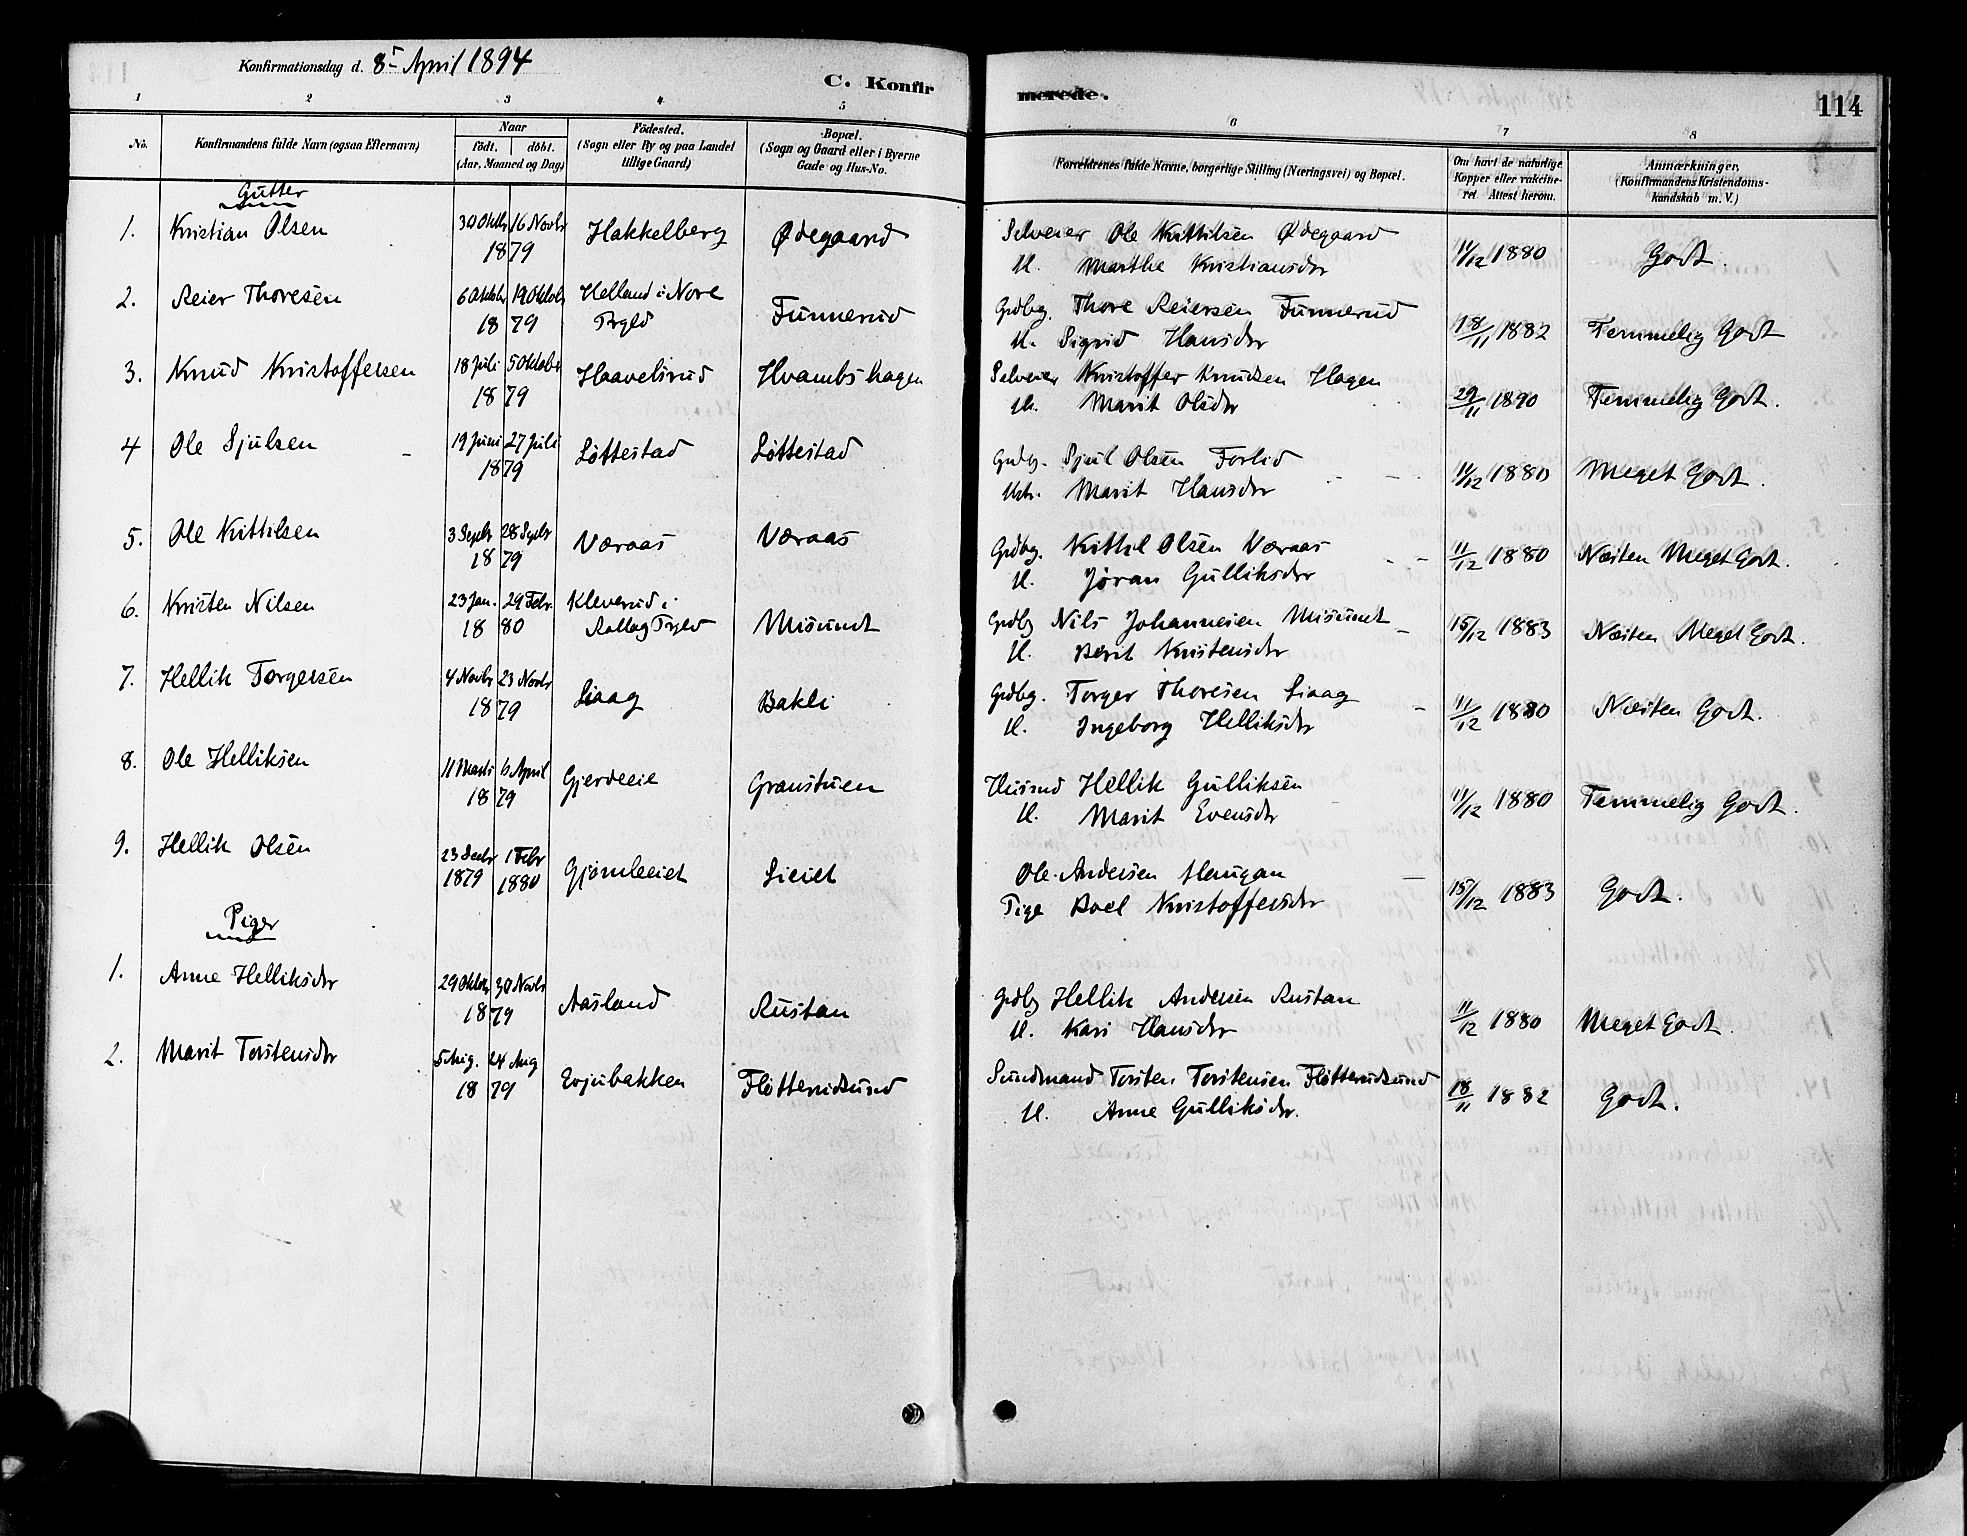 Konfirmationsdag d. 8de April 1894
C. Konfirmerede.
114
1 2 3 4 5 6 7 8
No.
Konfirmandens fulde Navn (ogsaa Efternavn)
Naar
födt. döbt.
(Aar, Maaned og Dag)
Födested.
(Sogn eller By og paa Landet
tillige Gaard)
Bopæl.
(Sogn og Gaard eller i Byerne
Gade og Hus-No.
(Forældrenes fulde Navne, borgerlige Stilling (Næringsvei) og Bopæl.
Om havt de naturlige
Kopper eller vakcine-
ret Attest herom.
Anmærkninger.
(Konfirmandens Kristendoms-
kundskab m. V.)
Gutter
1. Kristian Olsen 30 Oktbr 16 Novbr 1879 Hakkelberg Ødegaard Selveier Ole Kittilsen Ødegaard 11/12 1880 Godt.
H. Marthe Kristiansdr
2. Reier Thoresen 6 Oktobr 19 Oktobr 1879 Helland i Nore Prgld Funnerud Grdbg. Thore Reiersen Funnerud 18/11 1882 Temmelig Godt
H. Sigrid Hansdr
3. Knud Kristoffersen 18 Juli 5 Oktobr 1879 Haavelsrud Hvambshagen Selveier Kristoffer Knudsen Hagen 29/11 1890 Temmelig Godt.
H. Marit Olsdr
4 Ole Sjulsen 19 Juni 27 Juli 1879 Løttestad Løttestad Grdbg. Sjul Olsen Forlid 11/12 1880 Meget Godt.
Hstr. Marit Hansdr
5. Ole Kittilsen 3 Septbr 28 Septbr 1879 Væraas Væraas Grdbg. Kittil Olsen Væraas 11/12 1880 Næsten Meget Godt.
H. Jøran Gulliksdr
6. Kristen Nilsen 23 Jan. 29 Febr. 1880 Kleverud i Rollag Prgld Misundt Grdbg Nils Johannesen Misundt 15/12 1883 Næsten Meget Godt.
H. Berit Kristensdr
7. Hellik Torgersen 4 Novbr 23 Novbr 1879 Liaag Bakli Grdbg. Torger Thoresen Liaag 11/12 1880 Næsten Godt.
H. Ingeborg Helliksdr
8. Ole Helliksen 11 Marts 6 April 1879 Gjerdeeie Granstuen Husmd Hellik Gulliksen 11/12 1880 Temmelig Godt.
H. Marit Evensdr
9. Hellik Olsen 23 Decbr 1879 1 Febr 1880 Gjømleeiet Lieiet Ole Andersen Haugan 15/12 1883 Godt.
Pige Boel Kristoffersdr
Piger
1. Anne Helliksdr 29 Oktobr 30 Novbr 1879 Aasland Rustan Grdbg Hellik Andersen Rustan 11/12 1880 Meget Godt.
H. Kari Hansdr
2. Marit Torstensdr 5 Aug. 24 Aug 1879 Evjubakken Fløtterudsund Sundmand Torsten Torstensen Fløtterudsund 18/11 1882 Godt.
H. Anne Gulliksdr.